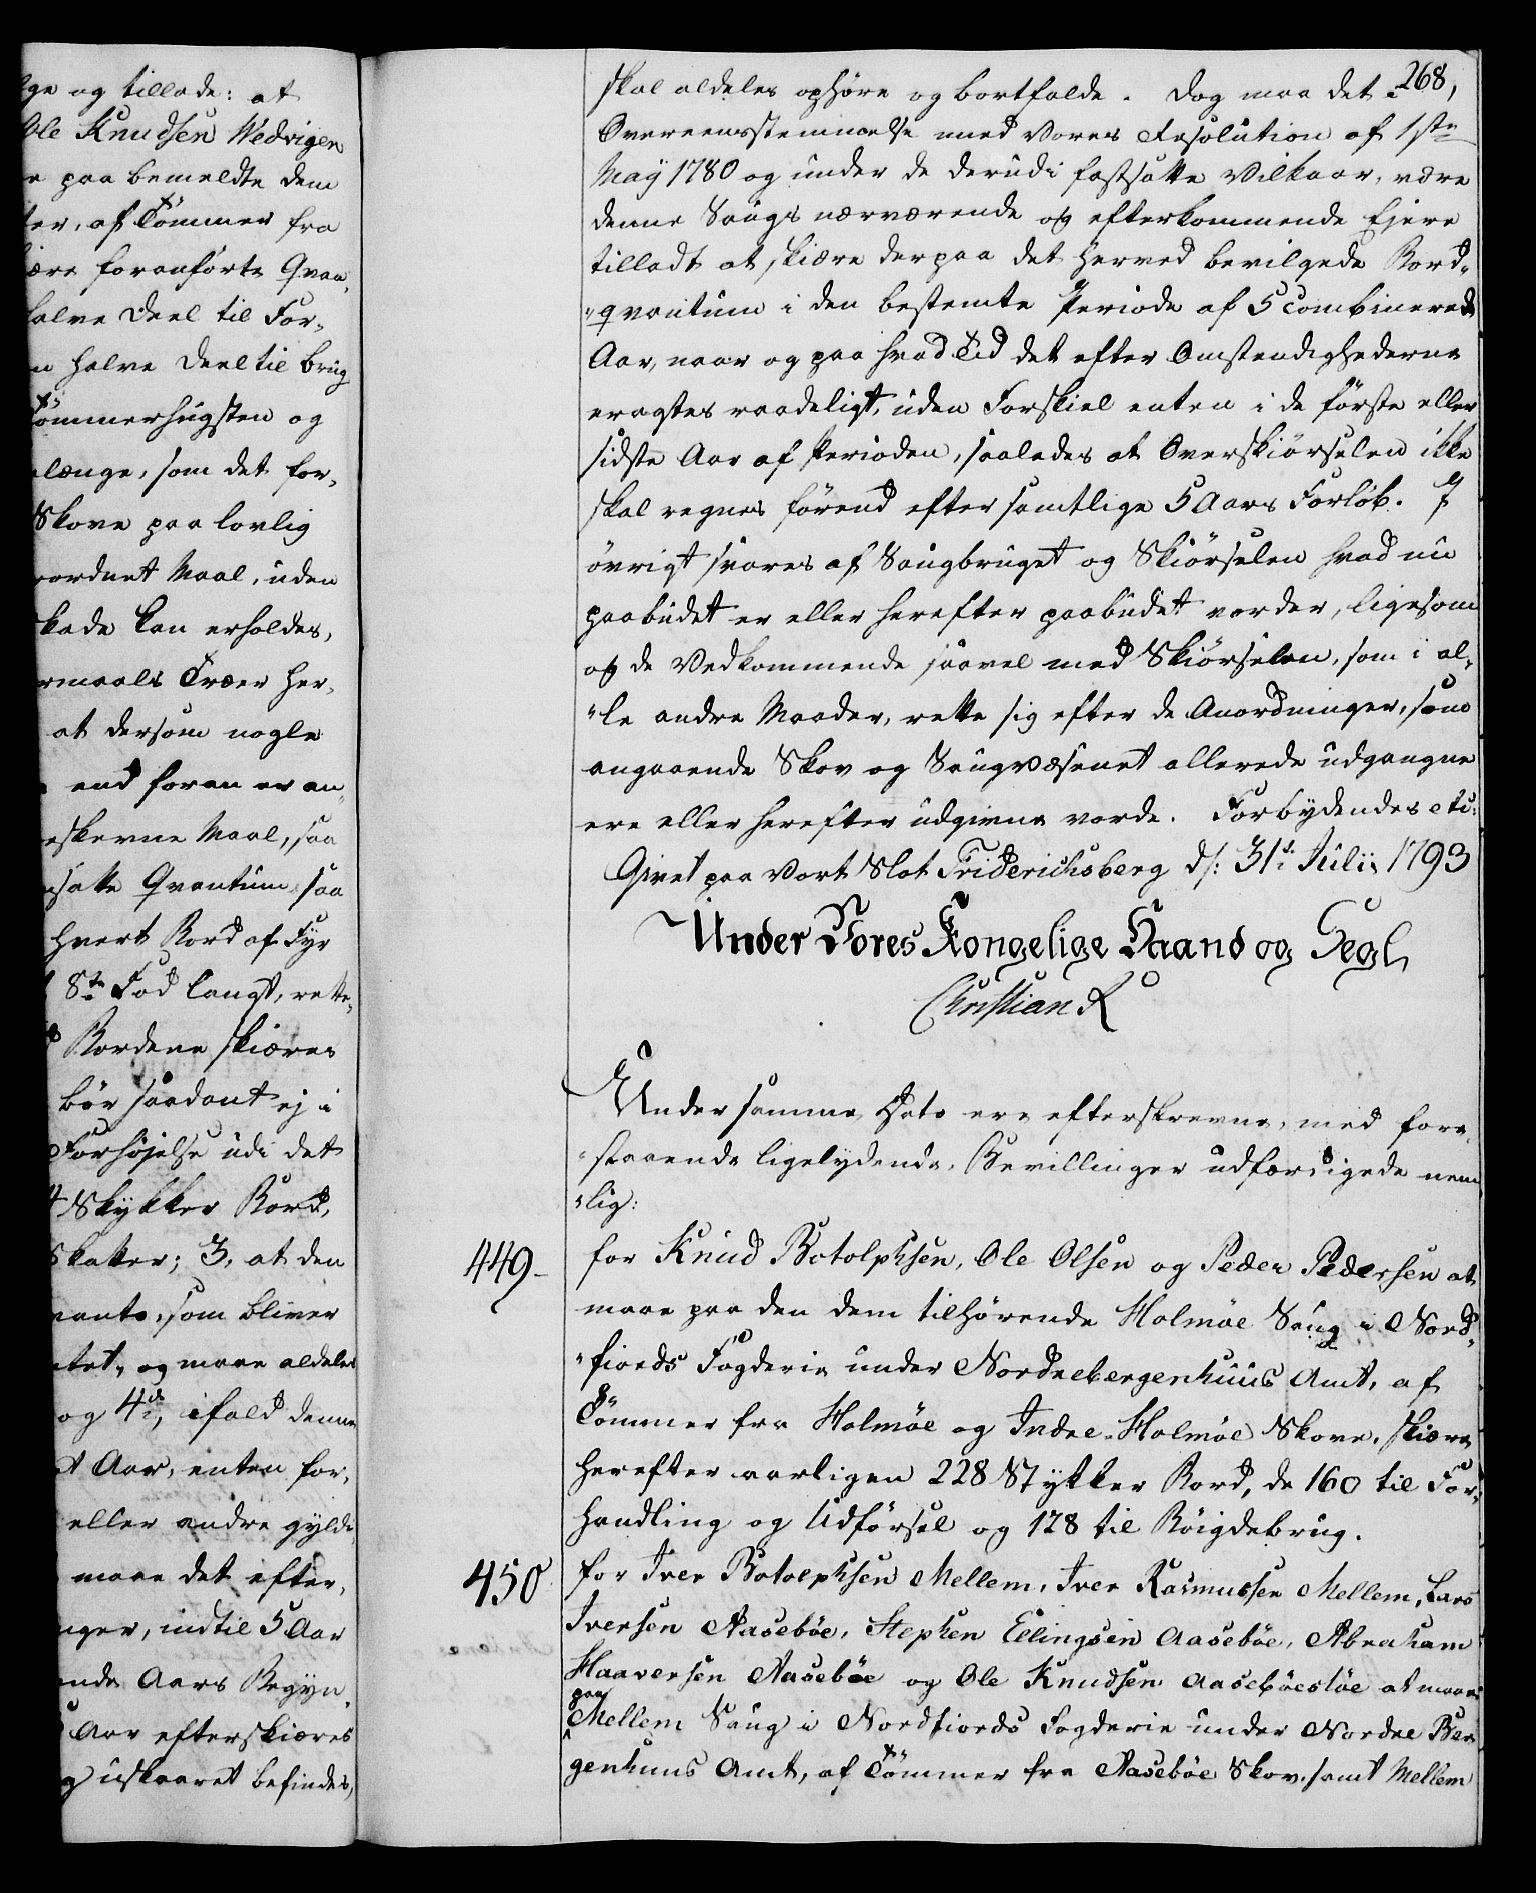 ge og tillade: at
Ole Knudsen Wedvigen
e paa bemeldte dem
ter, af Tömmer fra
ære foranförte Qvan„
halve Deel til For„
n halve Deel til brug
Tömmerhugsten og
længe, som det for„
Skove paa lovlig
rordnet Maal, uden
kade kan erholdes,
rmaals Træer her„
at dersom nogle
end foran er an„
eskrevne Maal, saa
satte Qvantum, saa
hvert Bord af Fyr
8te Fod langt, rette„
Bordene skiæres
bör saadant ej i
Forhöjelse udi det
Stykker Bord,
skatter; 3, at den
vanto, som bliver
ntet, og maae aldeles
og 4de, ifald denne
et Aar, enten for„
eller andre gyldi„
maae det efter„
nger, indtil 5 Aar
ende Aars Begyn„
Aar efterskiæres
g uskaaret befindes,
268,
skal aldeles ophöre og bortfalde. Dog maa det i
Overeensstemmelse med Vores Resolution af 1ste
Maÿ 1780 og under de derudi fastsatte Vilkaar, være
denne Saugs nærværende og efterkommende Ejere
tilladt at skiære derpaa det herved bevilgede Bord„
„qvantum i den bestemte Periode af 5 combinerede
Aar, naar og paa hvad Tid det efter Omstendighederne
eragtes raadeligt, uden Forskiel enten i de förste eller
sidste Aar af Perioden, saaledes at Overskiörselen ikke
skal regnes förend efter samtlige 5 Aars Forlöb. I
övrigt svares af Saugbruget og Skiörselen hvad nu
paabudet er eller herefter paabudet vorder, ligesom
og de Vedkommende saavel med Skiörselen, som i al„
„le andre Maader, rette sig efter de Anordninger, som
angaaende Skov og Saugvæsenet allerede udgangne
ere eller herefter udgivne vorde. Forbydendes etc:
Givet paa Vort Slot Friderichsberg d: 31te Julii 1793
Under Vores Kongelige Haand og Segl
Christian R
Under samme Dato ere efterskrevne, med fore„
„staaende ligelydende, Bevillinger udfærdigede nem
„lig:
449- for Knud Botolphsen, Ole Olsen og Peder Pedersen at
maae paa den dem tilhörende Holmöe Saug i Nord„
„fiords Fogderie under Nordrebergenhuus Amt, af
Tömmer fra Holmöe og Indre-Holmöe Skove, skiære
herefter aarligen 228 Stykker Bord, de 160 til For„
handling og Udförsel og 128 til Böigdebrug.
450 for Iver Botolphsen Mellem, Iver Rasmussen Mellem, Lars
Iversen Aaseböe, Stephen Ellingsen Aaseböe, Abraham
Haaversen Aaseböe og Ole Knudsen Aaseböestöe at maae
paa
Mellem Saug i Nordfiords Fogderie under Nordre Ber
genhuus Amt, af Tömmer fra Aaseböe Skov, samt Mellem